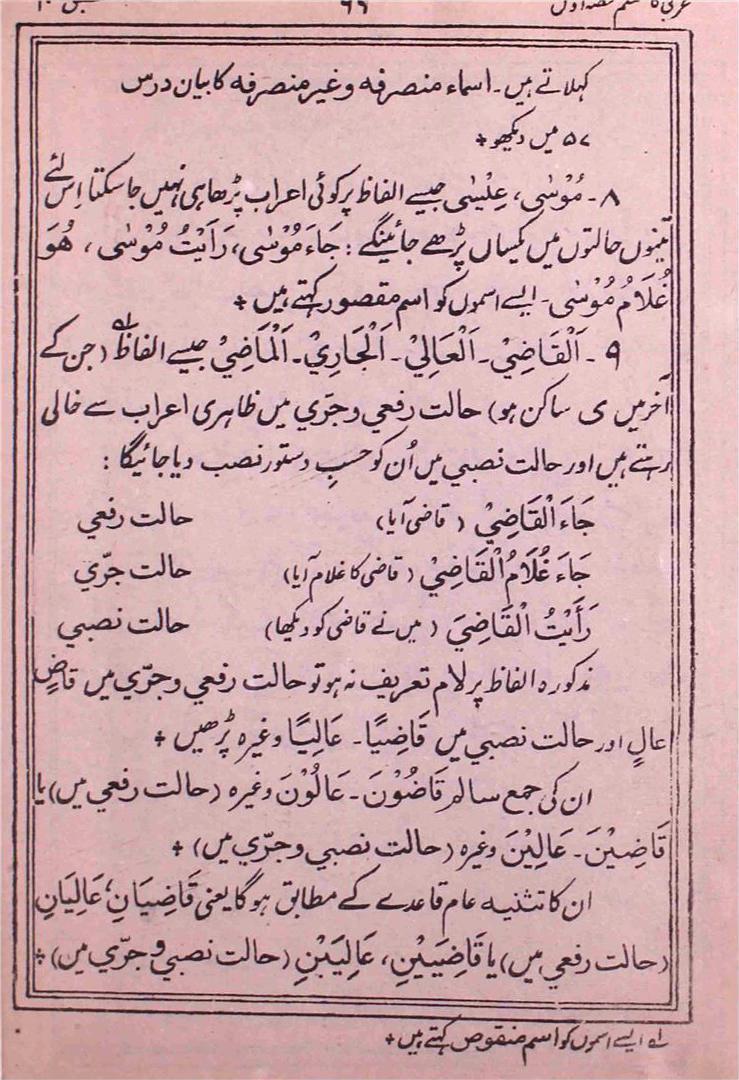 ۶۶
کہلاتے ہیں۔ اسماء منصرفہ و غیر منصرفہ کا بیان درس
۵۷ میں دیکھو +
۸۔ مُوْسٰی، عِیْسٰی جیسے الفاظ پر کوئی اعراب پڑھا ہی نہیں جا سکتا اِس لئے
تینوں حالتوں میں یکساں پڑھے جائینگے: جَاءَ مُوْسٰی، رَاَیْتُ مُوْسٰی، ھُوَ
غُلَامُ مُوْسٰی۔ ایسے اسموں کو اسم مقصور کہتے ہیں +
۹۔ اَلْقَاضِيْ۔ اَلْعَالِيْ۔ اَلْجَارِيْ۔ اَلْمَاضِيْ جیسے الفاظ لہ (جن کے
آخر میں ی ساکن ہو) حالت رفعي و جرّي میں ظاہری اعراب سے خالی
رہتے ہیں اور حالت نصبي میں اُن کو حسبِ دستور نصب دیا جائیگا:
جَاءَ الْقَاضِيْ (قاضی آیا) حالت رفعي
جَاءَ غُلَامُ الْقَاضِيْ (قاضی کا غلام آیا) حالت جرّي
رَأَیْتُ الْقَاضِيَ (میں نے قاضی کو دیکھا) حالت نصبي
مذکورہ الفاظ پر لام تعریف نہ ہو تو حالت رفعي و جرّي میں قاضٍ
عالٍ اور حالت نصبي میں قَاضِیًا۔ عَالِیًا وغیرہ پڑھیں +
ان کی جمع سالم قَاضُوْنَ۔ عَالُوْنَ وغیرہ (حالت رفعي میں) یا
قَاضِیْنَ۔ عَالِیْنَ وغیرہ (حالت نصبي و جرّي میں) +
ان کا تثنیہ عام قاعدے کے مطابق ہوگا یعنی قَاضِیَانِ، عَالِیَانِ
(حالت رفعي میں) یا قَاضِیَیْنِ، عَالِیَیْنِ (حالت نصبي و جرّي میں) +
لہ ایسے اسموں کو اسم منقوص کہتے ہیں +